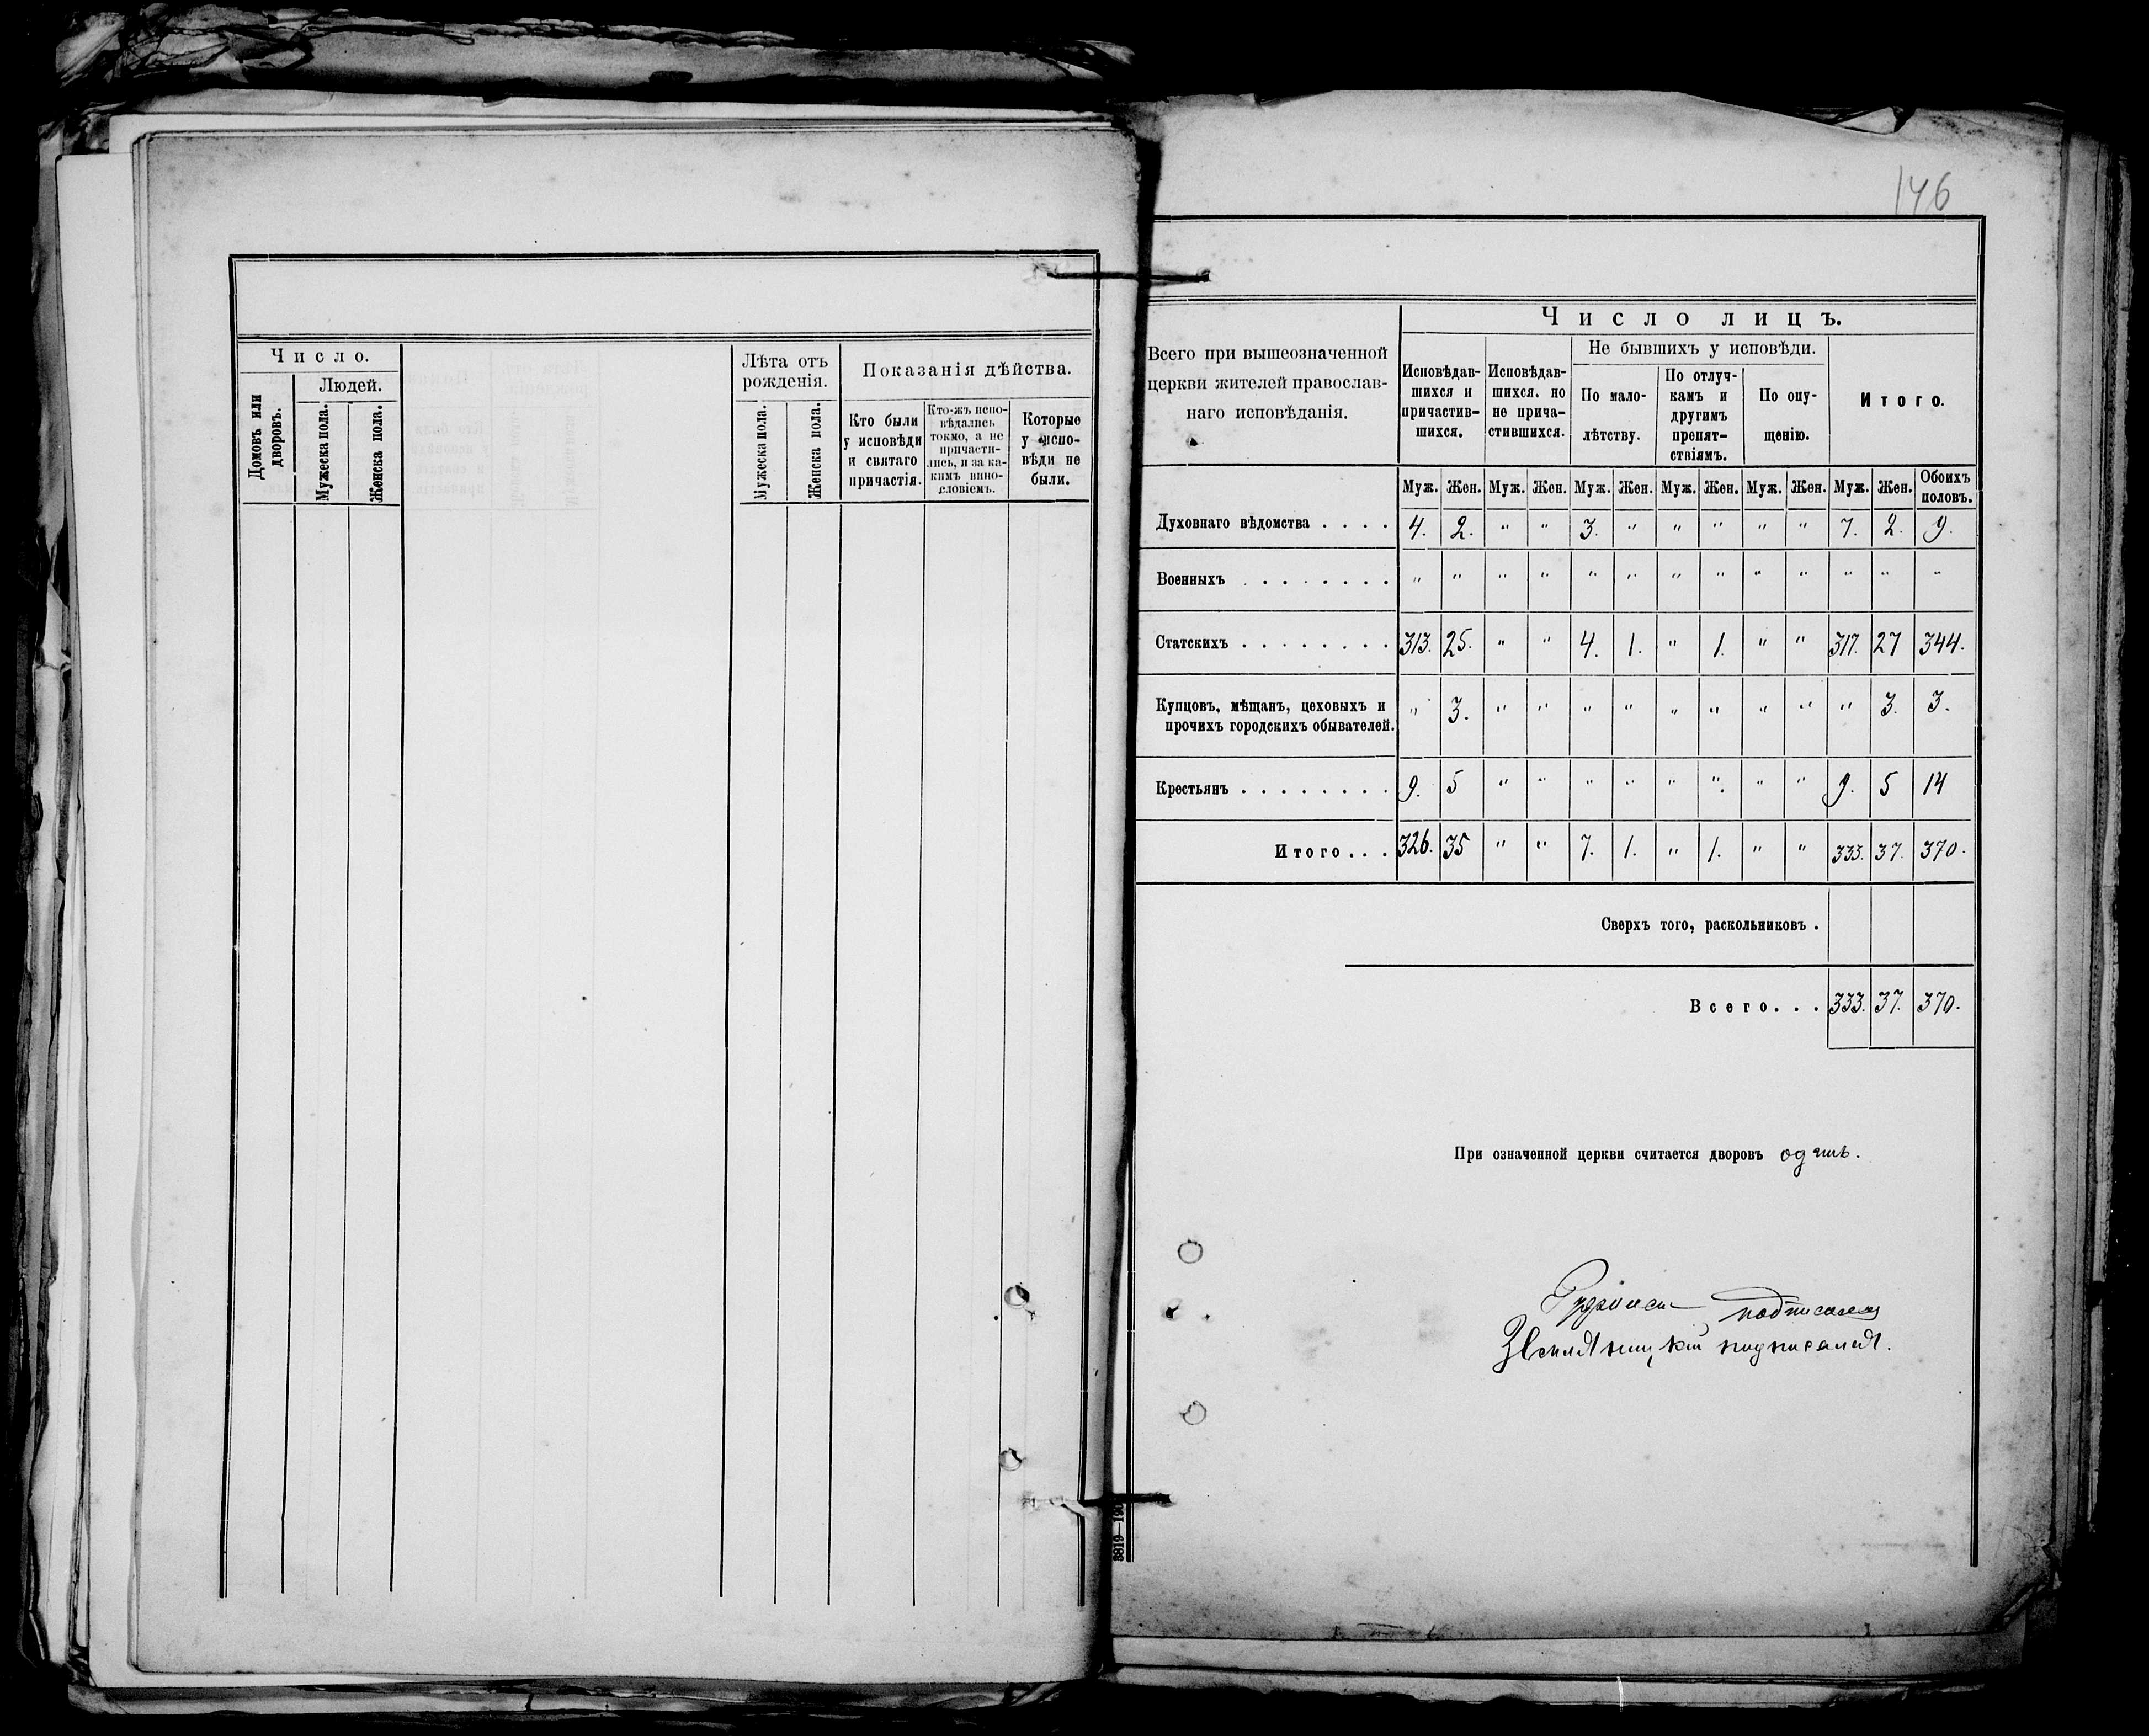 Число.
Людей.
Домовъ или дворовъ.
Мужеска пола.
Женска пола.
Лѣта отъ
рожденія.
Мужеска пола.
Женска пола.
Показанія дѣйства.
Кто были
у исповѣди
и святаго
причастія.
Кто-жъ испо-
вѣдались
токмо, а не
причасти-
лись, и за ка-
кимъ вино-
словіемъ.
Которые
у испо-
вѣди не
были.
146
Всего при вышеозначенной
церкви жителей православ-
наго исповѣданія.
Число лицъ.
Исповѣдав-
шихся и
причастив-
шихся.
Исповѣдав-
шихся, но
не прича-
стившихся.
Не бывшихъ у исповѣди.
По мало-
лѣтству.
По отлуч-
камъ и
другимъ
препят-
ствіямъ.
По опу-
щенію.
Итого.
Муж. Жен. Муж. Жен. Муж. Жен. Муж. Жен. Муж. Жен. Муж. Жен. Обоихъ половъ.
Духовнаго вѣдомства . . . . 4. 2. " " 3. " " " " " 7. 2. 9.
Военныхъ . . . . . . . . " " " " " " " " " " " " "
Статскихъ . . . . . . . . 313. 25. " " 4. 1. " 1. " " 317. 27 344.
Купцовъ, мѣщанъ, цеховыхъ и
прочихъ городскихъ обывателей. " 3. " " " " " " " " " 3. 3.
Крестьянъ . . . . . . . . 9. 5 " " " " " " " " 9. 5 14
Итого . . . 326. 35 " " 7. 1. " 1. " " 333. 37. 370.
Сверхъ того, раскольниковъ .
Всего . . . 333. 37. 370.
При означенной церкви считается дворовъ одинъ.
подписалъ
подписался.